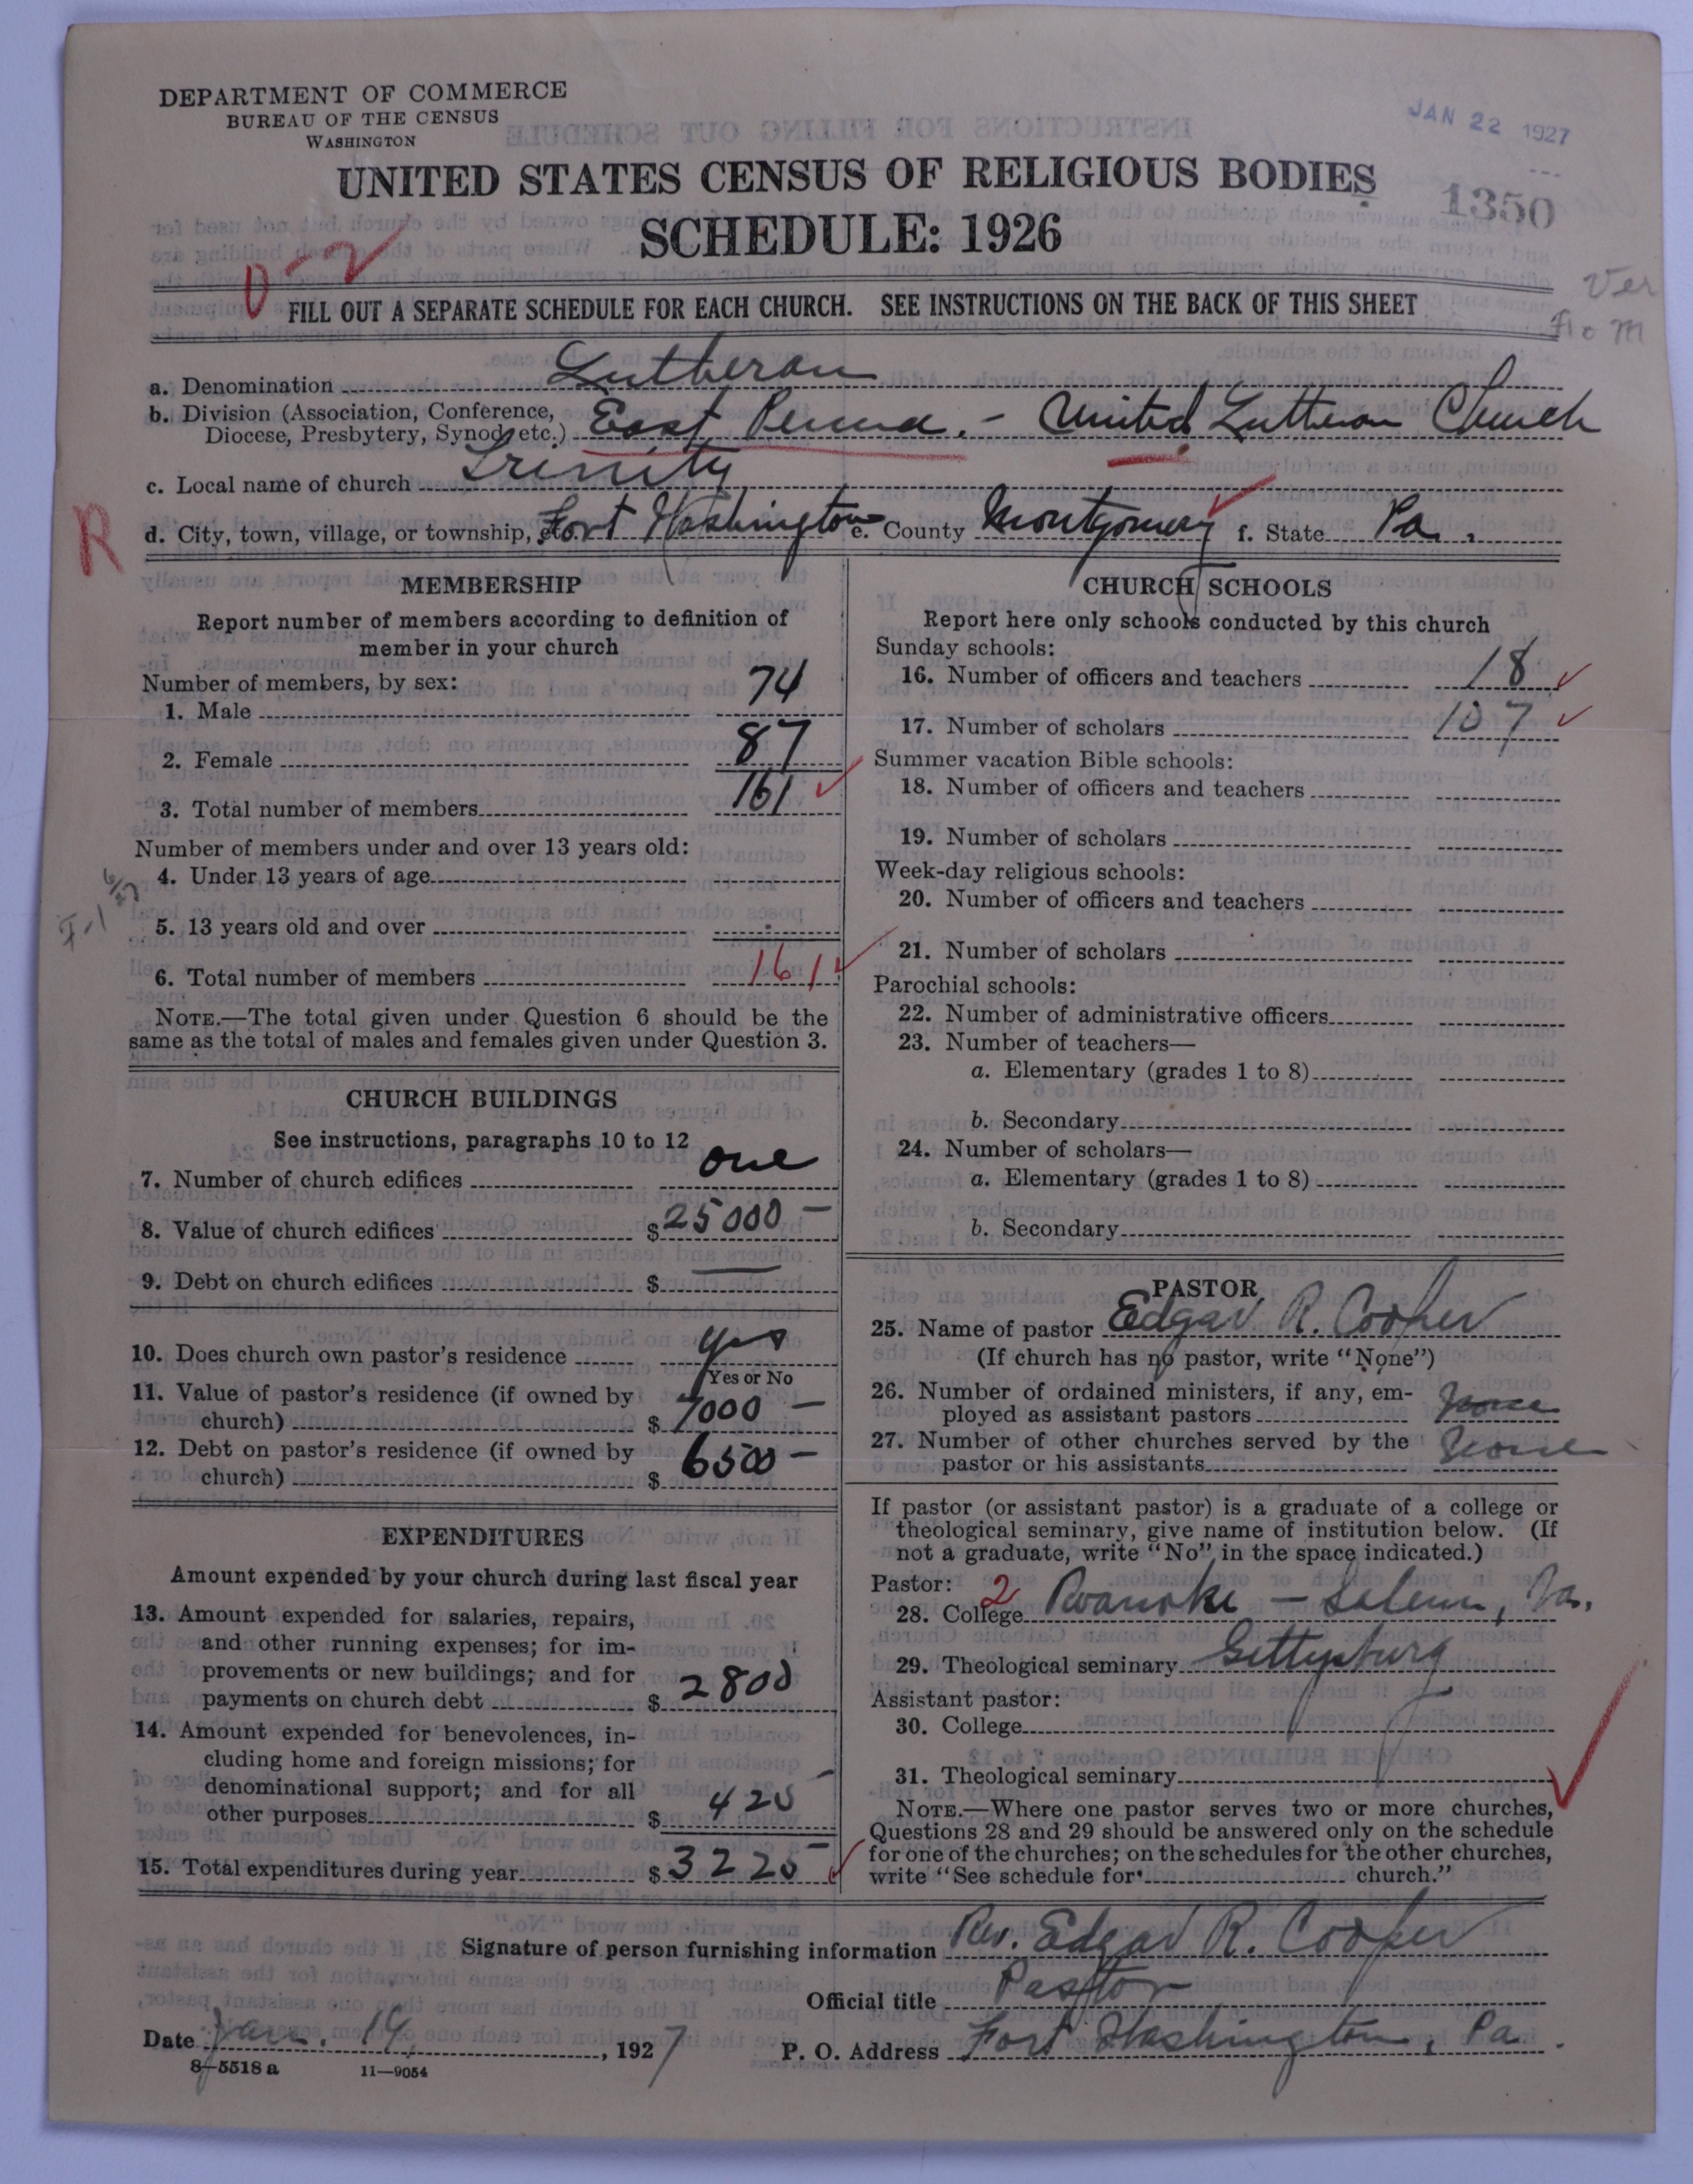 DEPARTMENT OF COMMERCE
BUREAU OF THE CENSUS
WASHINGTON
JAN 22 1927
UNITED STATES CENSUS OF RELIGIOUS BODIES
1350
SCHEDULE: 1926
0-2
Ver
FILL OUT A SEPARATE SCHEDULE FOR EACH CHURCH. SEE INSTRUCTIONS ON THE BACK OF THIS SHEET
a. Denomination Lutheran
b. Division (Association, Conference, Diocese, Presbytery, Synod, etc.) East Penna. - United Lutheran Church
c. Local name of church Trinity
R
d. City, town, village, or township, etc. Fort Washington e. County Montgomery f. State Pa.
MEMBERSHIP
Report number of members according to definition of
member in your church
Number of members, by sex:
1. Male 74
2. Female 87
3. Total number of members 161
Number of members under and over 13 years old:
4. Under 13 years of age
5. 13 years old and over
6. Total number of members 161
NOTE.—The total given under Question 6 should be the
same as the total of males and females given under Question 3.
CHURCH BUILDINGS
See instructions, paragraphs 10 to 12
7. Number of church edifices one
8. Value of church edifices $25000 —
9. Debt on church edifices $ —
10. Does church own pastor's residence yes
Yes or No
11. Value of pastor's residence (if owned by
church) $ 7000 —
12. Debt on pastor's residence (if owned by
church) $ 6500 —
EXPENDITURES
Amount expended by your church during last fiscal year
13. Amount expended for salaries, repairs,
and other running expenses; for im-
provements or new buildings; and for
payments on church debt $ 2800
14. Amount expended for benevolences, in-
cluding home and foreign missions; for
denominational support; and for all
other purposes $ 425 —
15. Total expenditures during year $ 3225 —
CHURCH SCHOOLS
Report here only schools conducted by this church
Sunday schools:
16. Number of officers and teachers 18
17. Number of scholars 107
Summer vacation Bible schools:
18. Number of officers and teachers
19. Number of scholars
Week-day religious schools:
20. Number of officers and teachers
21. Number of scholars
Parochial schools:
22. Number of administrative officers
23. Number of teachers—
a. Elementary (grades 1 to 8)
b. Secondary
24. Number of scholars—
a. Elementary (grades 1 to 8)
b. Secondary
PASTOR
25. Name of pastor Edgar R. Cooper
(If church has no pastor, write "None")
26. Number of ordained ministers, if any, em-
ployed as assistant pastors None
27. Number of other churches served by the
pastor or his assistants None
If pastor (or assistant pastor) is a graduate of a college or
theological seminary, give name of institution below. (If
not a graduate, write "No" in the space indicated.)
Pastor: 2
28. College Roanoke - Salem, Va.
29. Theological seminary Gettysburg
Assistant pastor:
30. College
31. Theological seminary
NOTE.—Where one pastor serves two or more churches,
Questions 28 and 29 should be answered only on the schedule
for one of the churches; on the schedules for the other churches,
write "See schedule for church."
Signature of person furnishing information Rev. Edgar R. Cooper
Official title Pastor
Date Jan. 19, 1927 P. O. Address Fort Washington, Pa.
8-5518a 11—9054